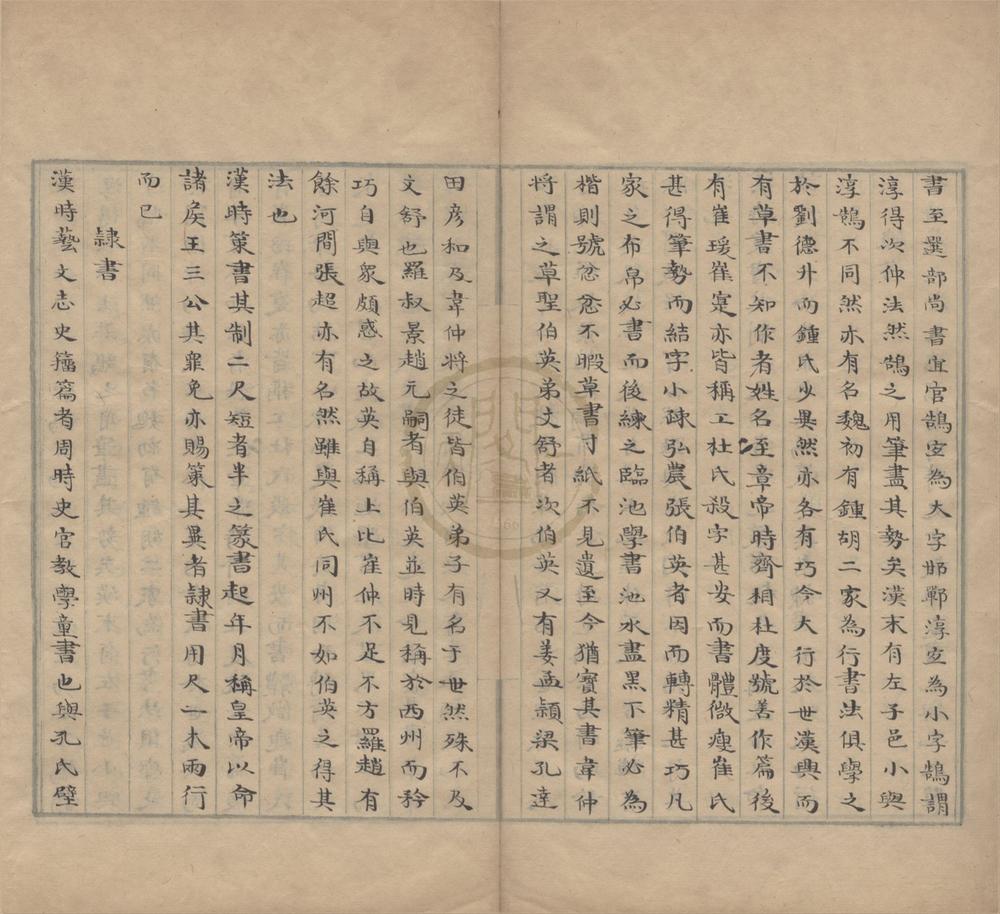 書至選部尚書宜官鵠宐為大字邯鄲淳宐為小字鵠謂
淳得次仲法然鵠之用筆盡其勢矣漢末有左子邑小與
淳鵠不同然亦有名魏初有鍾胡二家為行書法俱學之
於劉德升而鍾氏少異然亦各有巧今大行於世漢興而
有草書不知作者姓名至章帝時齊相杜度號善作篇後
有崔瑗崔寔亦皆稱工杜氏殺字甚安而書體微瘦崔氏
甚得筆勢而結字小疎弘農張伯英者因而轉精甚巧凡
家之布帛必書而後練之臨池學書池水盡黑下筆必為
楷則號忩忩不暇草書寸紙不見遺至今猶寶其書韋仲
將謂之草聖伯英弟文舒者次伯英又有姜孟穎梁孔達
田彦和及韋仲將之徒皆伯英弟子有名于世然殊不及
文舒也羅叔景趙元嗣者與伯英並時見稱於西州而矜
巧自與衆頗惑之故英自稱上比崔仲不足不方羅趙有
餘河間張超亦有名然雖與崔氏同州不如伯英之得其
法也
漢時策書其制二尺短者半之篆書起年月稱皇帝以命
諸矦王三公其罪免亦賜策其異者隷書用尺一木兩行
而已
隷書
漢時藝文志史籒篇者周時史官教學童書也與孔氏壁